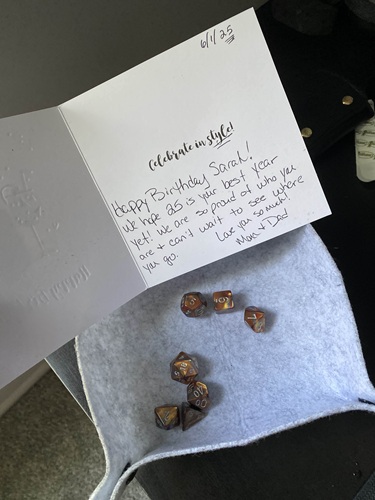 6/1/25
Celebrate in style!
Happy Birthday Sarah!
We hope 25 is your best year
yet! We are so proud of who you
are + can't wait to see where
you go.
Love you so much!
Mom + Dad